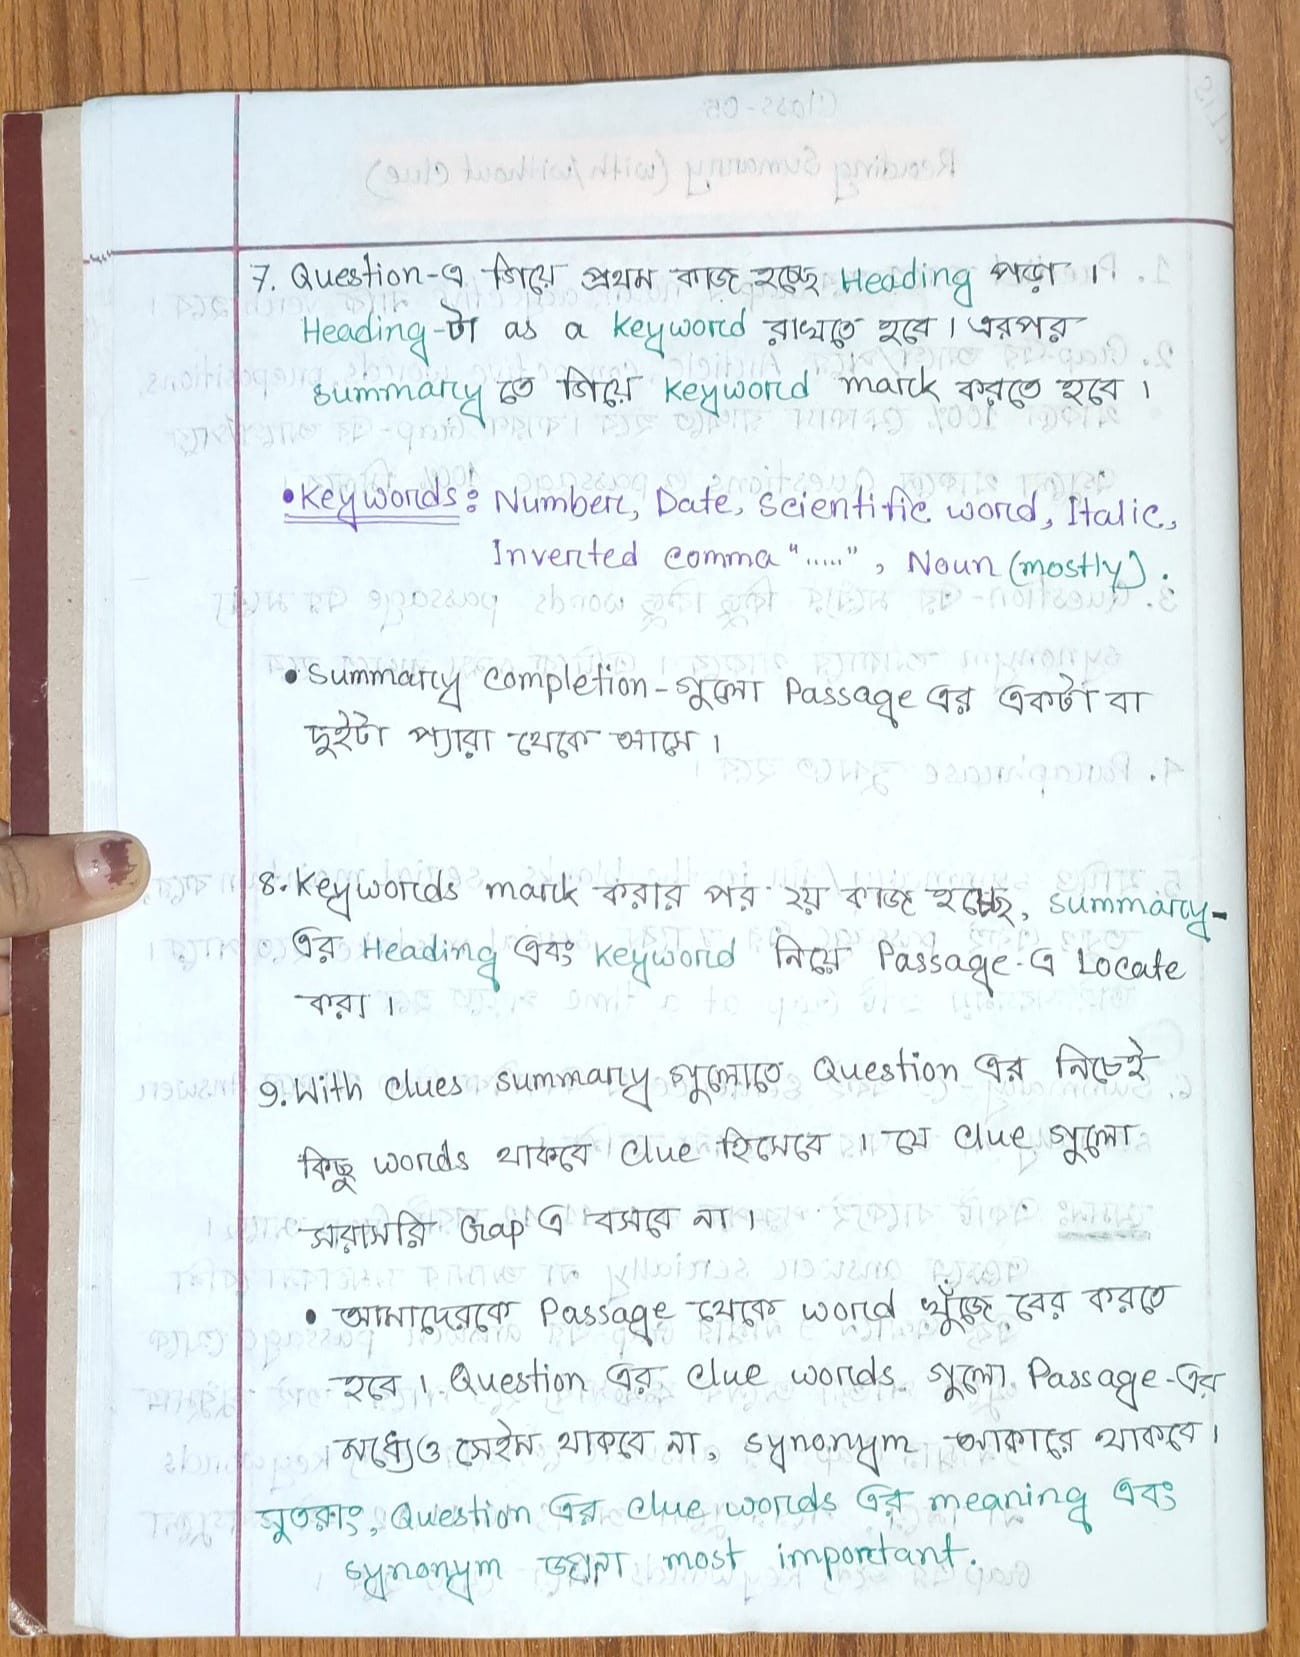 7. Question-এ গিয়ে প্রথম কাজ হচ্ছে Heading পড়া ।
Heading-টা as a keyword রাখতে হবে । এরপর
summary তে গিয়ে keyword mark করতে হবে ।
• Keywords: Number, Date, Scientific word, Italic,
Inverted comma ".....", Noun (mostly).
• Summary completion-গুলো Passage এর একটা বা
দুইটা প্যারা থেকে আসে ।
8. Keywords mark করার পর ২য় কাজ হচ্ছে, summary-
এর Heading এবং keyword নিয়ে Passage-এ Locate
করা ।
9. With clues summary গুলোতে Question এর নিচেই
কিছু words থাকবে clue হিসেবে । যে clue গুলো
সারাসরি Gap এ বসবে না ।
• আমাদেরকে Passage থেকে word খুঁজে বের করতে
হবে । Question এর clue words গুলো Passage-এর
মধ্যেও সেইম থাকবে না, synonym আকারে থাকবে ।
সুতরাং, Question এর clue words এর meaning এবং
synonym জানা most important.